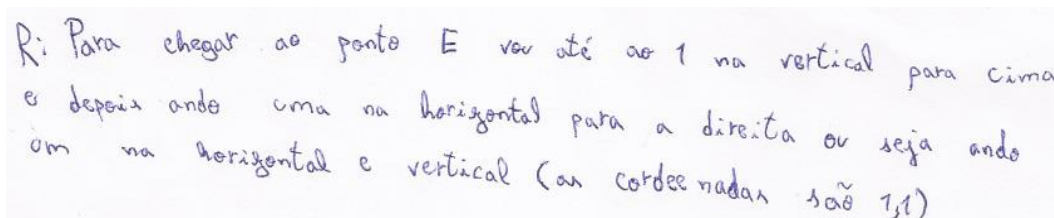 R: Para chegar ao ponto E vou até ao 1 na vertical para cima
e depois ando uma na horizontal para a direita ou seja ando
um na horizontal e vertical (as cordeenadas são 1,1)